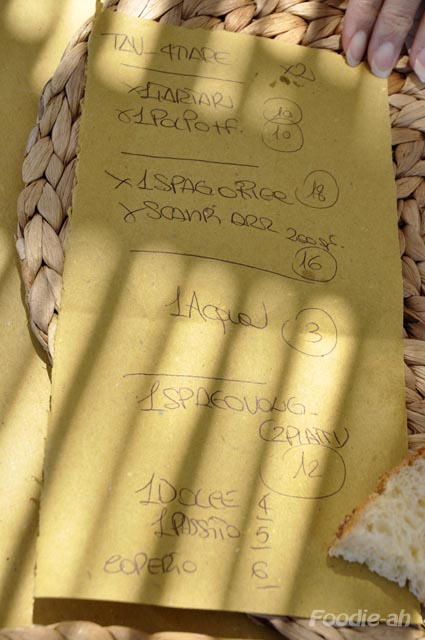 TAV_4MARE x2
x1TARTAR 10
x1POLPO+f. 10
x1SPAG 18
xSCAMPI 200gr.
16
1Acqua 3
1SPAGOVONG_
(2PIATTI)
12
1DOLCE 4
1PASSITO 5
COPERTO 6
Foodie-ah